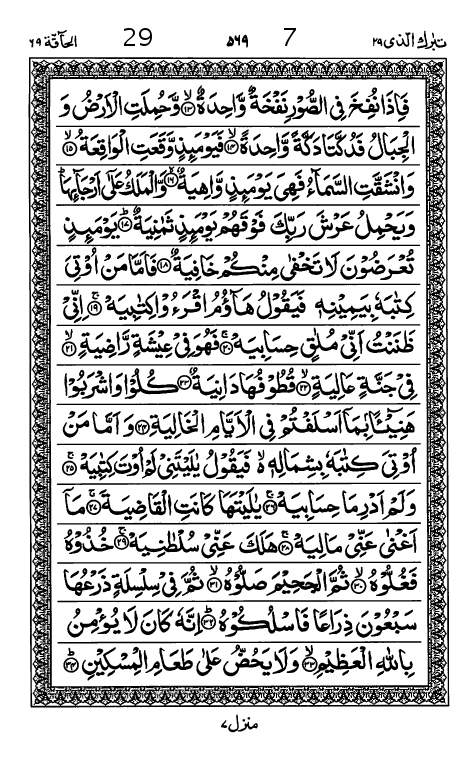 تبٰرك الذى ٢٩ 7 ٥٦٩ 29 الحآقة ٦٩
فَاِذَا نُفِخَ فِى الصُّوْرِ نَفْخَةٌ وَّاحِدَةٌ ۙ﴿۱۳﴾ وَّحُمِلَتِ الْاَرْضُ وَ
الْجِبَالُ فَدُكَّتَا دَكَّةً وَّاحِدَةً ۙ﴿۱۴﴾ فَيَوْمَىِٕذٍ وَّقَعَتِ الْوَاقِعَةُ ۙ﴿۱۵﴾
وَانْشَقَّتِ السَّمَآءُ فَهِىَ يَوْمَىِٕذٍ وَّاهِيَةٌ ۙ﴿۱۶﴾ وَّالْمَلَكُ عَلٰٓى اَرْجَآىِٕهَا ؕ
وَيَحْمِلُ عَرْشَ رَبِّكَ فَوْقَهُمْ يَوْمَىِٕذٍ ثَمٰنِيَةٌ ؕ﴿۱۷﴾ يَوْمَىِٕذٍ
تُعْرَضُوْنَ لَا تَخْفٰى مِنْكُمْ خَافِيَةٌ ﴿۱۸﴾ فَاَمَّا مَنْ اُوْتِىَ
كِتٰبَهٗ بِيَمِيْنِهٖ فَيَقُوْلُ هَآؤُمُ اقْرَءُوْا كِتٰبِيَهْ ۚ﴿۱۹﴾ اِنِّىْ
ظَنَنْتُ اَنِّىْ مُلٰقٍ حِسَابِيَهْ ۚ﴿۲۰﴾ فَهُوَ فِىْ عِيْشَةٍ رَّاضِيَةٍ ۙ﴿۲۱﴾
فِىْ جَنَّةٍ عَالِيَةٍ ۙ﴿۲۲﴾ قُطُوْفُهَا دَانِيَةٌ ﴿۲۳﴾ كُلُوْا وَاشْرَبُوْا
هَنِيْٓـــًٔا ۢ بِمَاۤ اَسْلَفْتُمْ فِى الْاَيَّامِ الْخَالِيَةِ ﴿۲۴﴾ وَاَمَّا مَنْ
اُوْتِىَ كِتٰبَهٗ بِشِمَالِهٖ ۙ فَيَقُوْلُ يٰلَيْتَنِىْ لَمْ اُوْتَ كِتٰبِيَهْ ۚ﴿۲۵﴾
وَلَمْ اَدْرِ مَا حِسَابِيَهْ ۚ﴿۲۶﴾ يٰلَيْتَهَا كَانَتِ الْقَاضِيَةَ ۚ﴿۲۷﴾ مَاۤ
اَغْنٰى عَنِّىْ مَالِيَهْ ۚ﴿۲۸﴾ هَلَكَ عَنِّىْ سُلْطٰنِيَهْ ۚ﴿۲۹﴾ خُذُوْهُ
فَغُلُّوْهُ ۙ﴿۳۰﴾ ثُمَّ الْجَحِيْمَ صَلُّوْهُ ۙ﴿۳۱﴾ ثُمَّ فِىْ سِلْسِلَةٍ ذَرْعُهَا
سَبْعُوْنَ ذِرَاعًا فَاسْلُكُوْهُ ؕ﴿۳۲﴾ اِنَّهٗ كَانَ لَا يُؤْمِنُ
بِاللّٰهِ الْعَظِيْمِ ۙ﴿۳۳﴾ وَلَا يَحُضُّ عَلٰى طَعَامِ الْمِسْكِيْنِ ؕ﴿۳۴﴾
منزل ٧